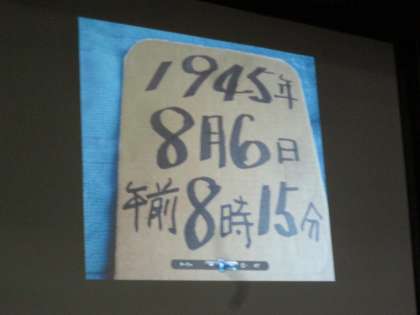 1945年
8月6日
午前8時15分